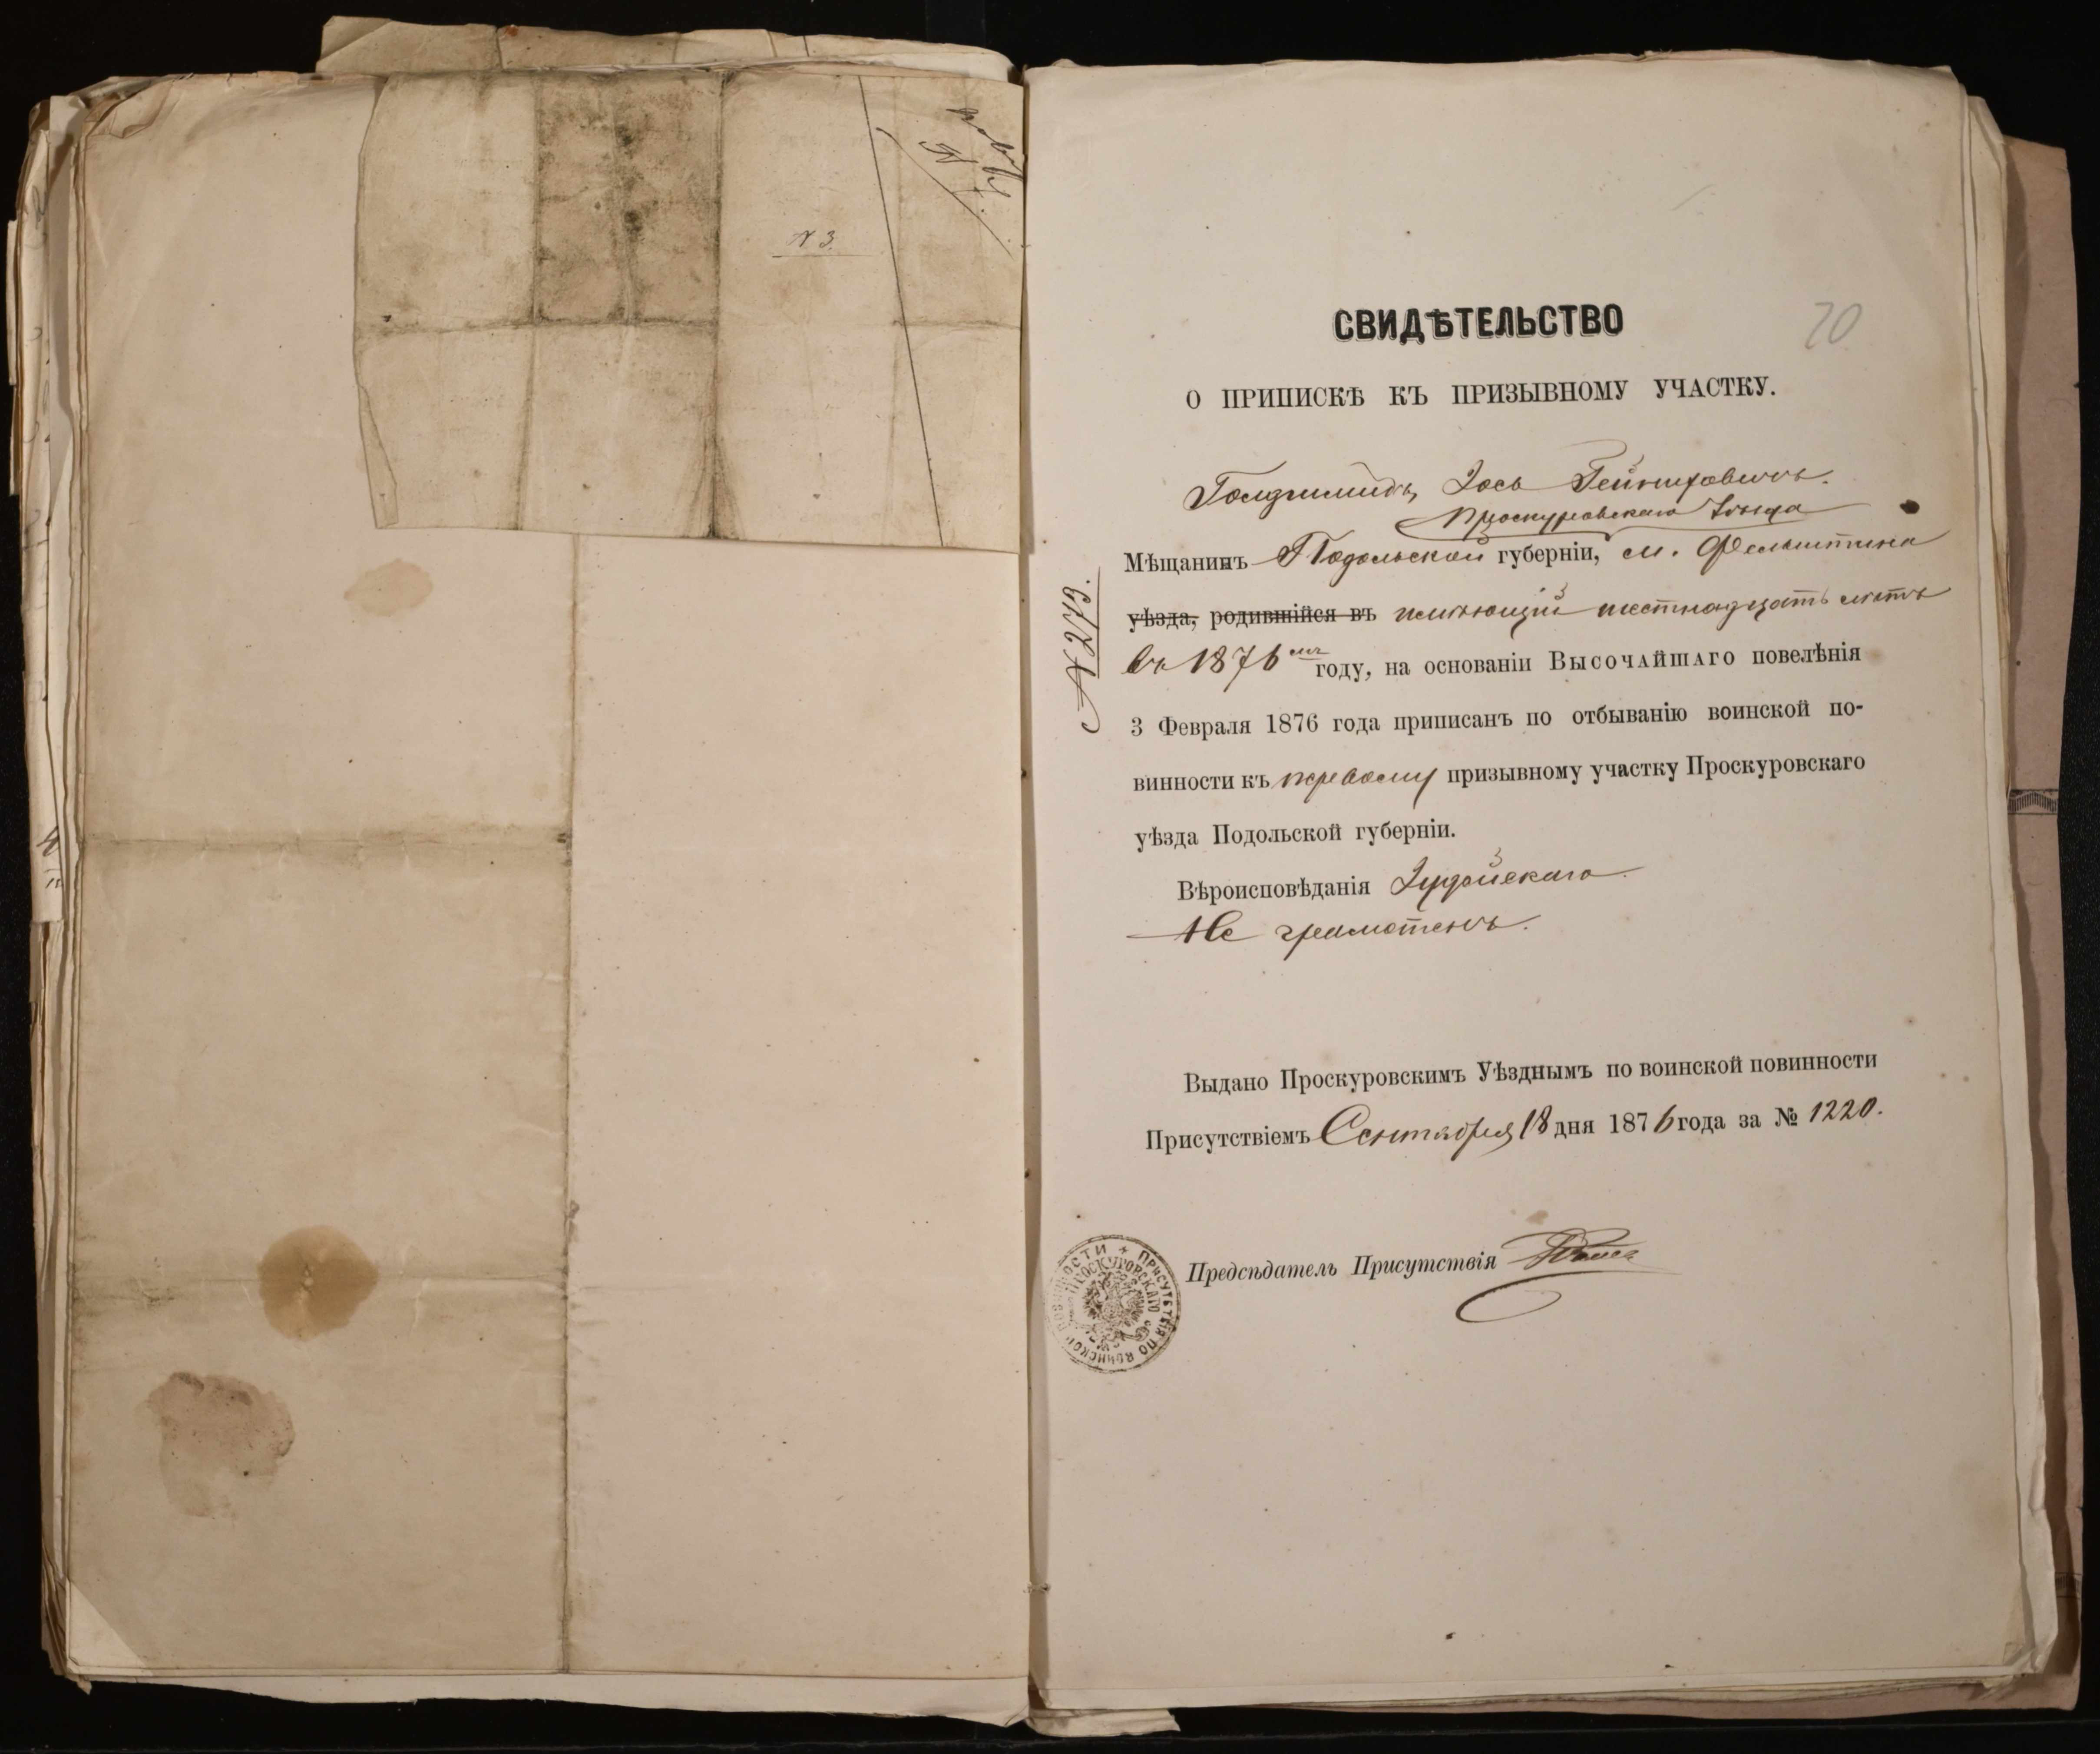 N 3.
СВИДѢТЕЛЬСТВО
70
О ПРИПИСКѢ КЪ ПРИЗЫВНОМУ УЧАСТКУ.
Голдшмидъ, Іось
Проскуровскаго Уѣзда
Мѣщанинъ Подольской губерніи, м. Фельштина
уѣзда, родившійся въ имѣющій шестнадцать лѣтъ
въ 1876 мъ году, на основаніи ВЫСОЧАЙШАГО повелѣнія
3 Февраля 1876 года приписанъ по отбыванію воинской по-
винности къ первому призывному участку Проскуровскаго
уѣзда Подольской губерніи.
Вѣроисповѣданія Іудейскаго
Не грамотенъ.
Выдано Проскуровскимъ Уѣзднымъ по воинской повинности
Присутствіемъ Сентября 18 дня 1876 года за № 1220.
Предсѣдатель Присутствія
ПРИСУТСТВІЯ ПО ВОИНСКОЙ ПОВИННОСТИ *
ПРОСКУРОВСКАГО